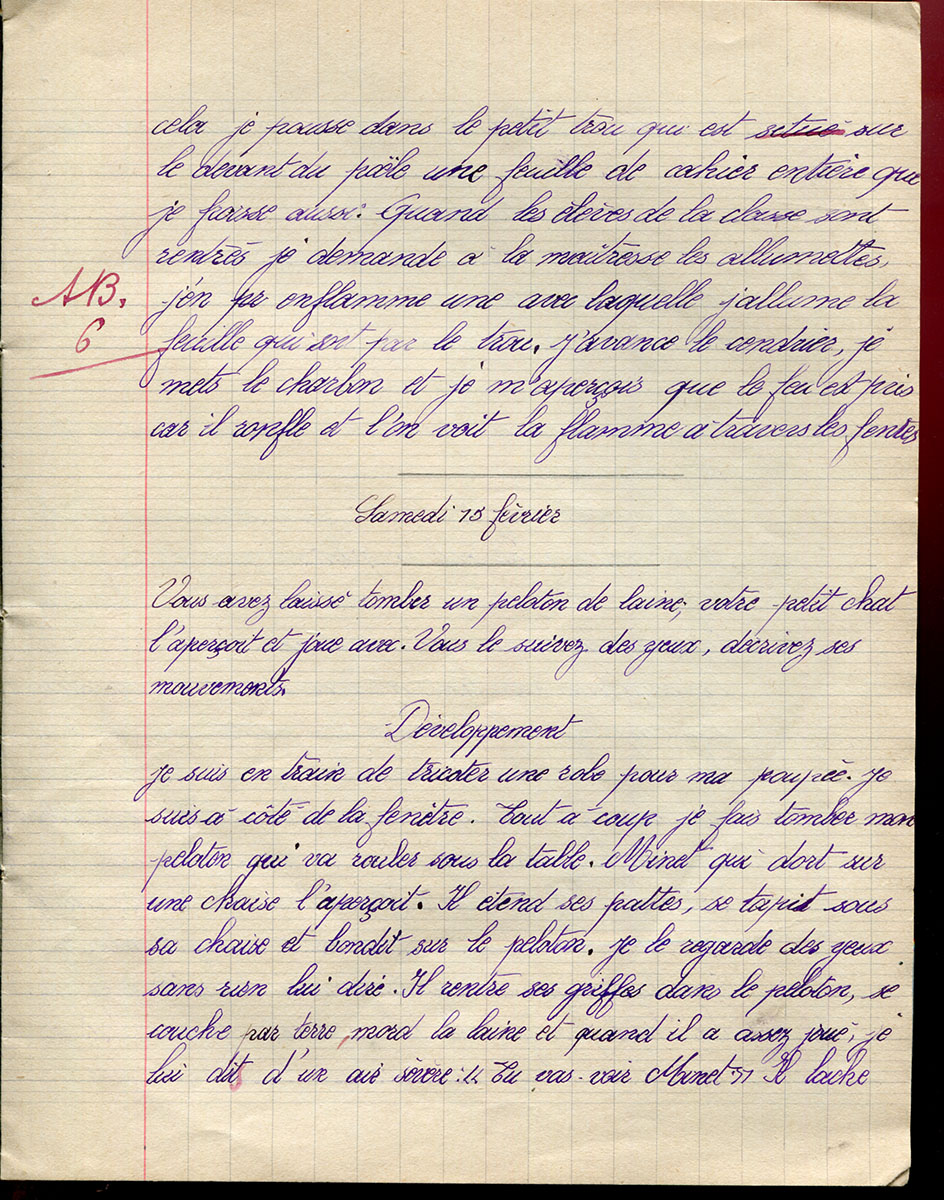 cela je pousse dans le petit trou qui est situé sur
le devant du poële une feuille de cahier entière que
je froisse aussi. Quand les élèves de la classe sont
rentrés je demande à la maîtresse les allumettes,
j'en enflamme une avec laquelle j'allume la
AB.
feuille qui sort par le trou. j'avance le cendrier, je
6
mets le charbon et je m'aperçois que le feu est pris
car il ronfle et l'on voit la flamme a travers les fentes
Samedi 13 février
Vous avez laissé tomber un peloton de laine, votre petit chat
l'aperçoit et joue avec. Vous le suivez des yeux, décrivez ses
mouvements.
Développement
je suis en train de tricoter une robe pour ma poupée. je
suis à côté de la fenêtre. Tout à coup je fais tomber mon
peloton qui va rouler sous la table. Minet qui dort sur
une chaise l'aperçoit. Il étend ses pattes, se tapit sous
sa chaise et bondit sur le peloton. je le regarde des yeux
sans rien lui dire. Il rentre ses griffes dans le peloton, se
couche par terre, mord la laine et quand il a assez joué, je
lui dit d'un air sévère : " Tu vas voir Minet " Il lache